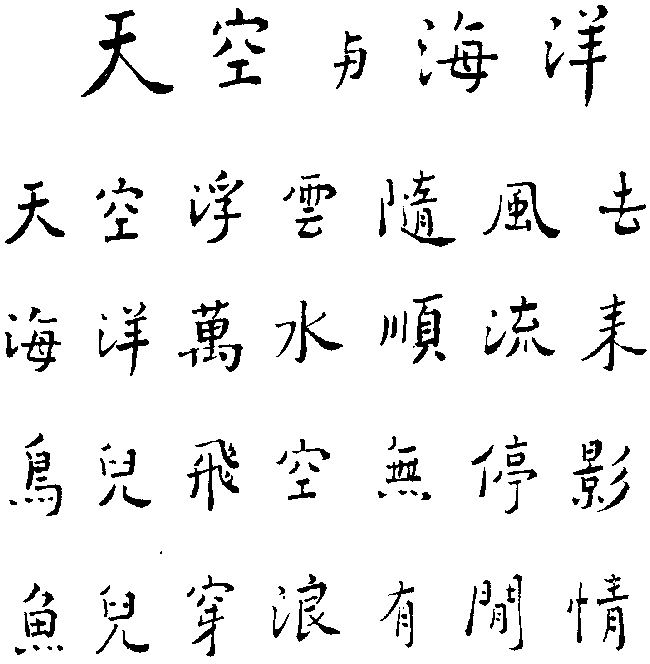 天空与海洋
天空浮雲隨風去
海洋萬水順流来
鳥兒飛空無停影
魚兒穿浪有閒情